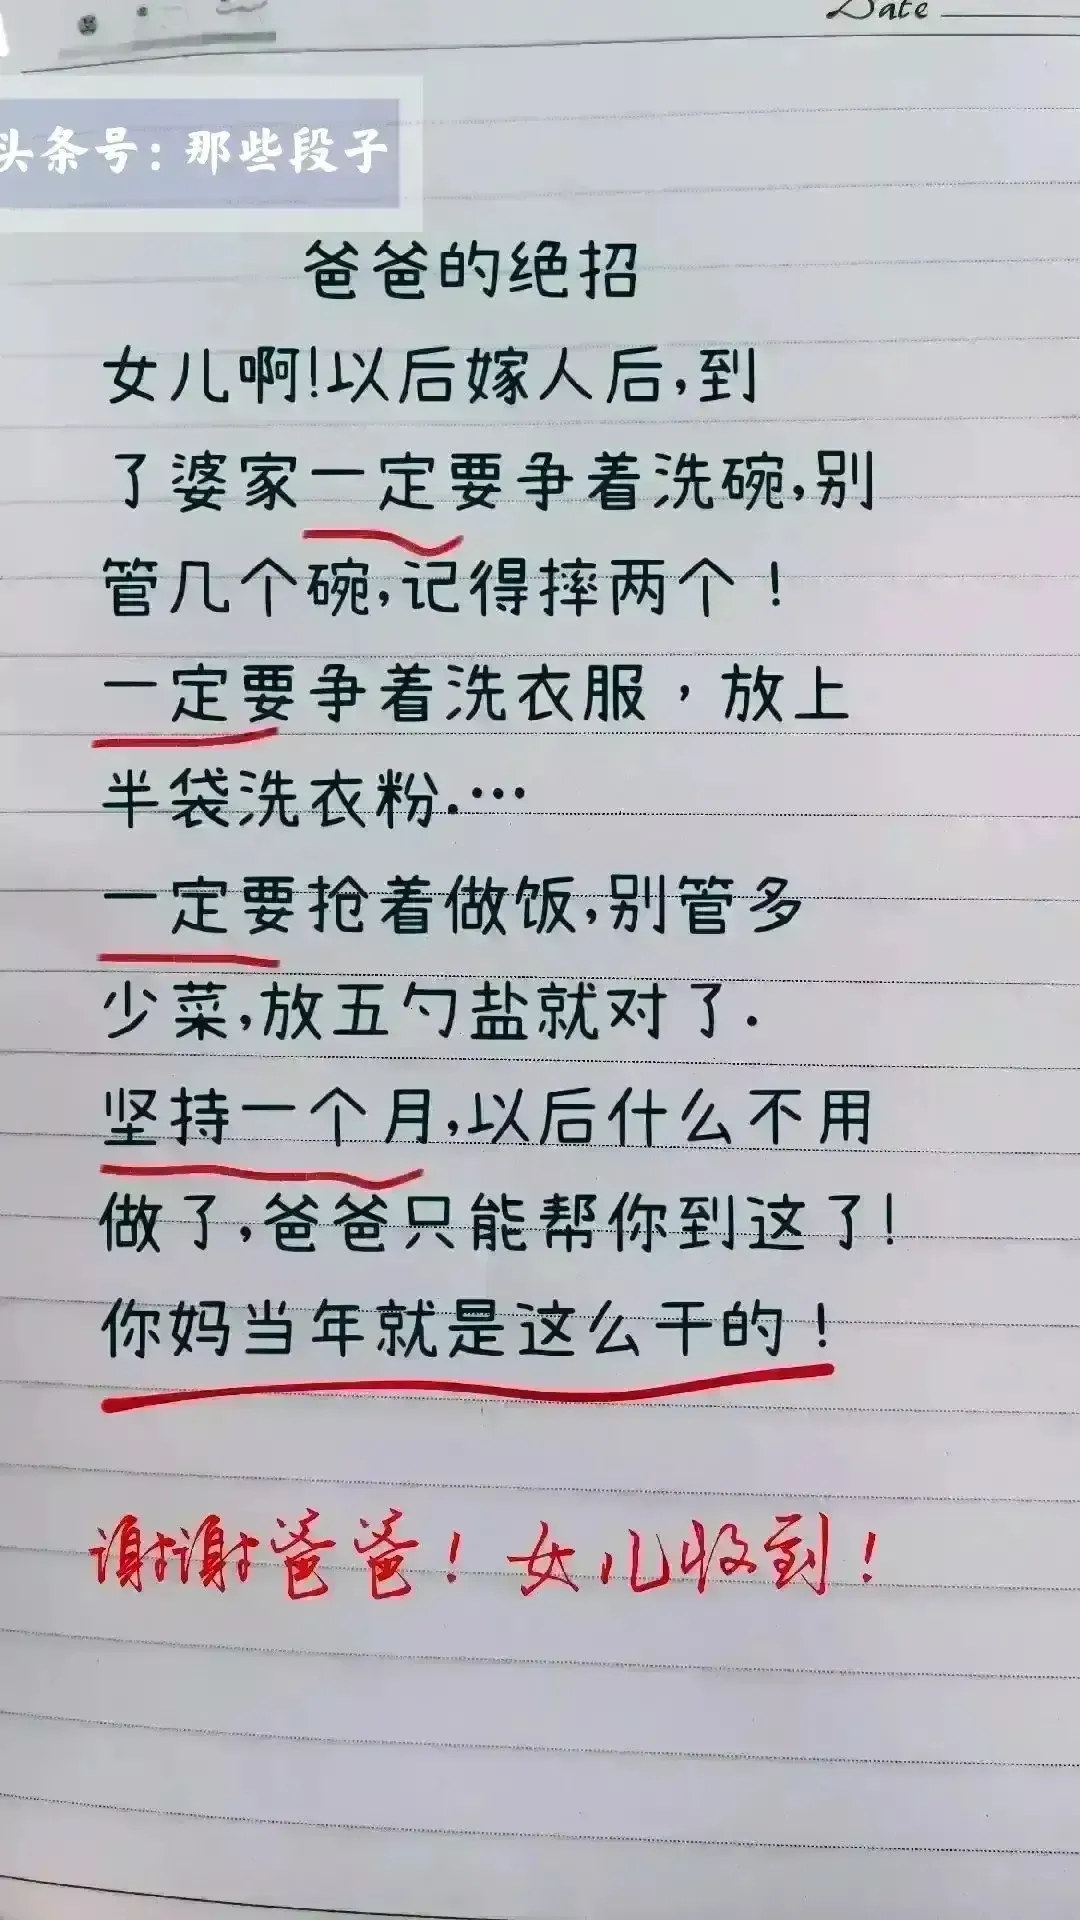 Date
头条号：那些段子
爸爸的绝招
女儿啊!以后嫁人后,到
了婆家一定要争着洗碗,别
管几个碗,记得摔两个！
一定要争着洗衣服，放上
半袋洗衣粉.…
一定要抢着做饭,别管多
少菜,放五勺盐就对了.
坚持一个月,以后什么不用
做了,爸爸只能帮你到这了!
你妈当年就是这么干的！
谢谢爸爸！女儿收到！